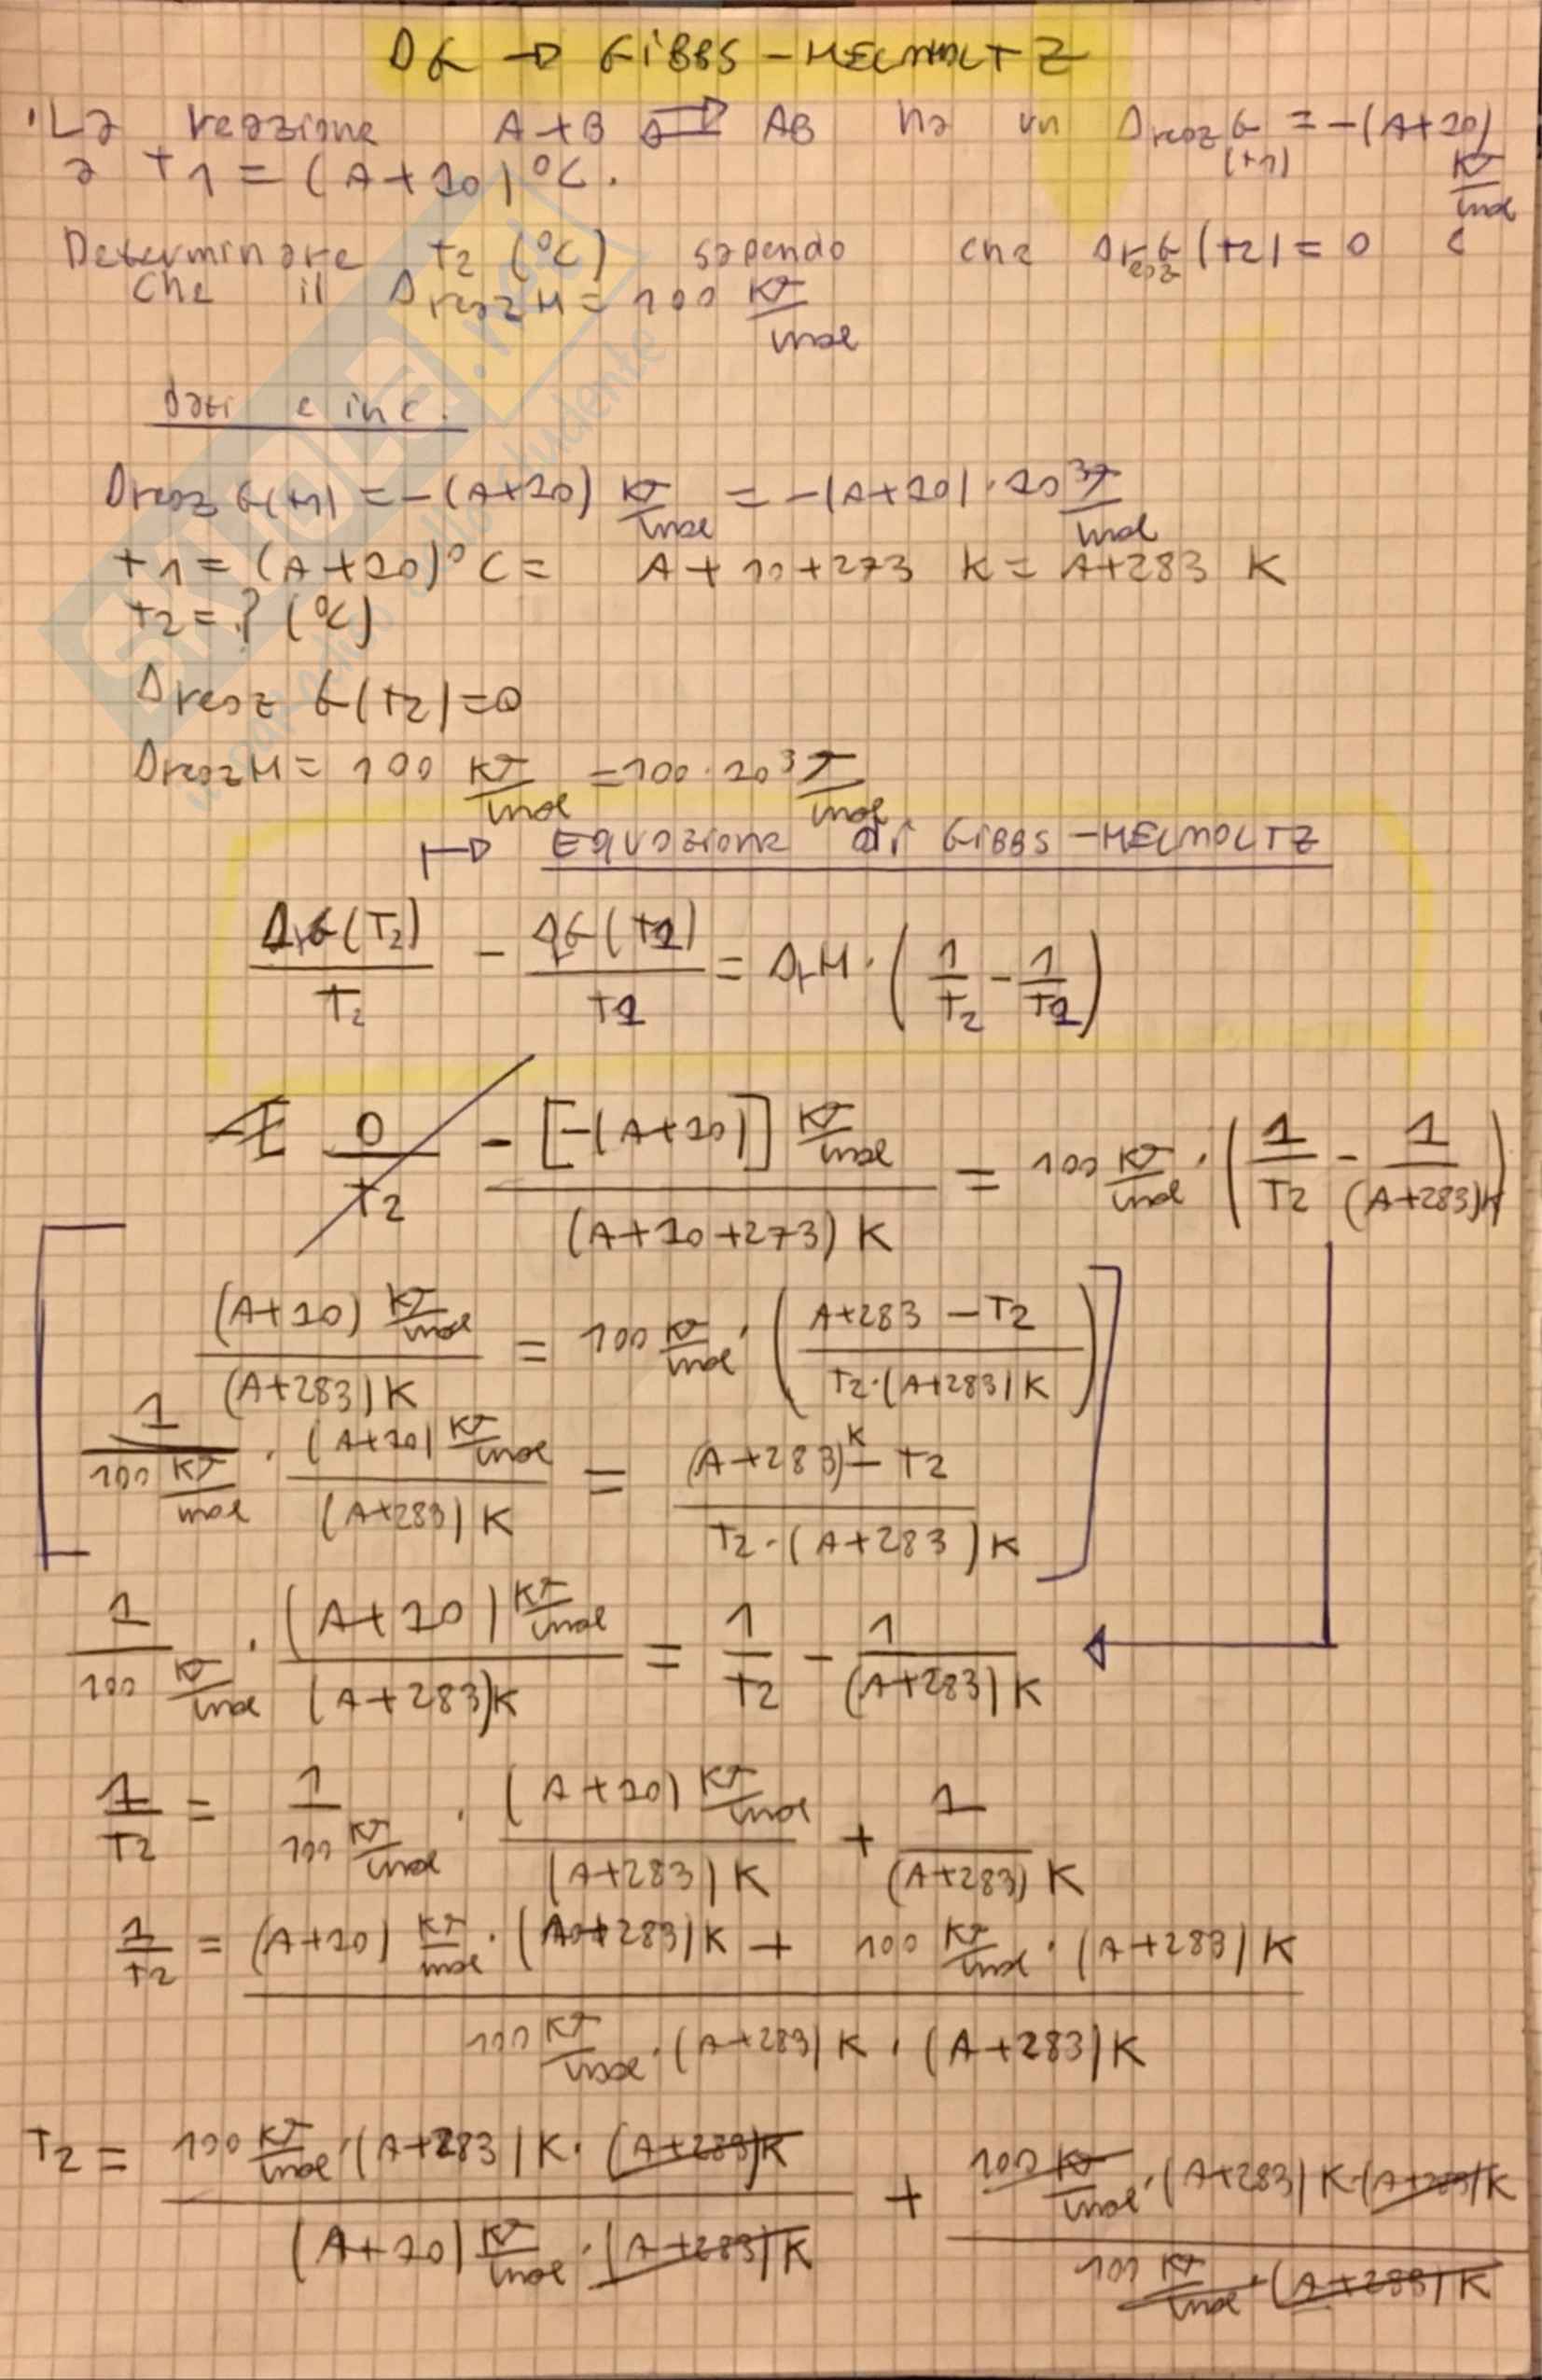 ΔG → GIBBS-HELMHOLTZ
• La reazione A+B ⇄ AB ha un Δreaz G(T1) = -(A+10) kJ/mol
a T1 = (A+10)°C.
Determinare T2 (°C) sapendo che Δreaz G(T2) = 0 e
che il Δreaz H = 100 kJ/mol
Dati e inc.
Δreaz G(T1) = -(A+10) kJ/mol = -(A+10)·10³ J/mol
T1 = (A+10)°C = A+10+273 K = A+283 K
T2 = ? (°C)
Δreaz G(T2) = 0
Δreaz H = 100 kJ/mol = 100·10³ J/mol
↦ Equazione di GIBBS-HELMOLTZ
ΔrG(T2)/T2 - ΔrG(T1)/T1 = ΔrH · (1/T2 - 1/T1)
0/T2 - [-(A+10)] kJ/mol / (A+10+273) K = 100 kJ/mol · (1/T2 - 1/(A+283)K)
(A+10) kJ/mol / (A+283) K = 100 kJ/mol · ((A+283 - T2) / (T2·(A+283) K))
1/(100 kJ/mol) · (A+10) kJ/mol / (A+283) K = ((A+283) K - T2) / (T2·(A+283) K)
1/(100 kJ/mol) · (A+10) kJ/mol / (A+283) K = 1/T2 - 1/((A+283) K)
1/T2 = 1/(100 kJ/mol) · (A+10) kJ/mol / (A+283) K + 1/((A+283) K)
1/T2 = ((A+10) kJ/mol · (A+283) K + 100 kJ/mol · (A+283) K) / (100 kJ/mol · (A+283) K · (A+283) K)
T2 = (100 kJ/mol · (A+283) K · (A+283) K) / ((A+10) kJ/mol · (A+283) K) + (100 kJ/mol · (A+283) K · (A+283) K) / (100 kJ/mol · (A+283) K)
SKUOLA.net